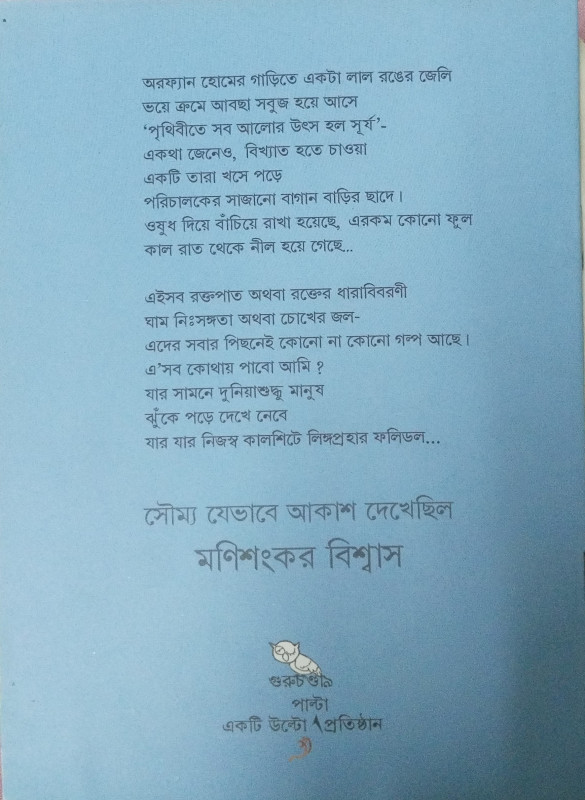 অরফ্যান হোমের গাড়িতে একটা লাল রঙের জেলি
ভয়ে ক্রমে আবছা সবুজ হয়ে আসে
‘পৃথিবীতে সব আলোর উৎস হল সূর্য’-
একথা জেনেও, বিখ্যাত হতে চাওয়া
একটি তারা খসে পড়ে
পরিচালকের সাজানো বাগান বাড়ির ছাদে।
ওষুধ দিয়ে বাঁচিয়ে রাখা হয়েছে, এরকম কোনো ফুল
কাল রাত থেকে নীল হয়ে গেছে...
এইসব রক্তপাত অথবা রক্তের ধারাবিবরণী
ঘাম নিঃসঙ্গতা অথবা চোখের জল-
এদের সবার পিছনেই কোনো না কোনো গল্প আছে।
এ'সব কোথায় পাবো আমি ?
যার সামনে দুনিয়াশুদ্ধু মানুষ
ঝুঁকে পড়ে দেখে নেবে
যার যার নিজস্ব কালশিটে লিঙ্গপ্রহার ফলিডল...
সৌম্য যেভাবে আকাশ দেখেছিল
মণিশংকর বিশ্বাস
গুরুচণ্ডা৯
পাল্টা
একটি উল্টো প্রতিষ্ঠান